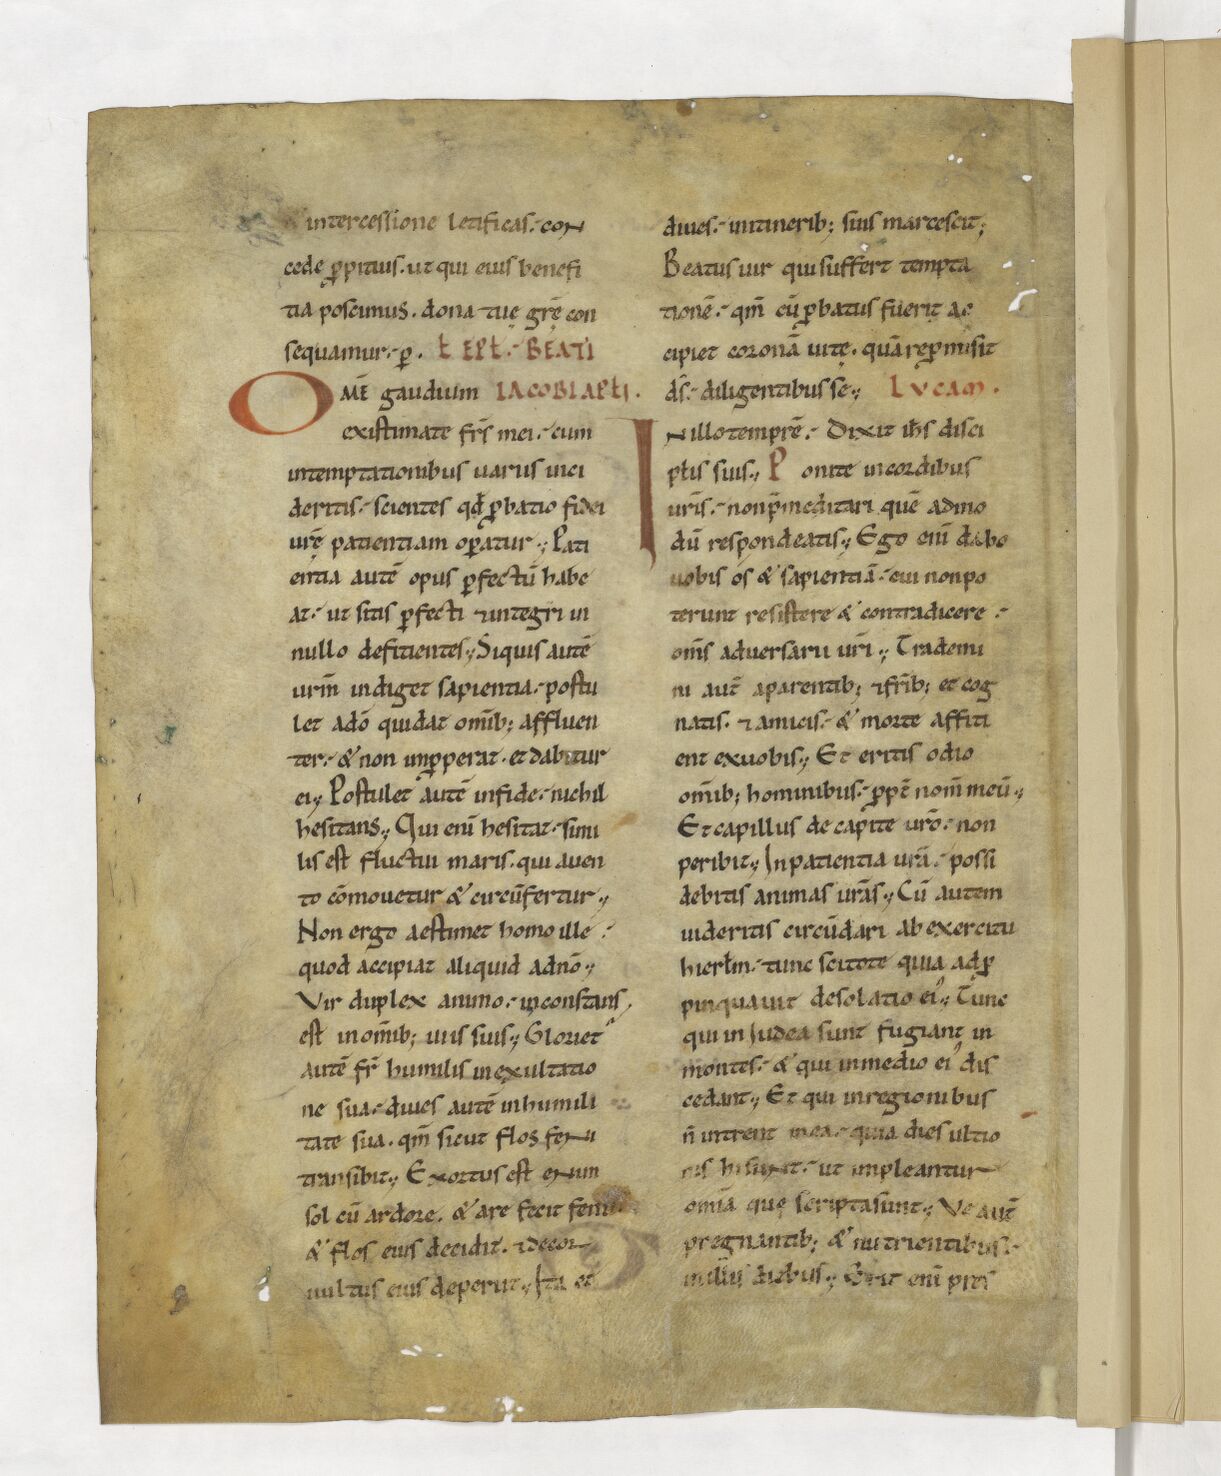 intercessione letificas. con
cede ꝓpitius. ut qui eius benefi
tia poscimus. dona tuę grę̄ con
sequamur. ꝑ. Ł EPŁ. BEATI
OMĒ gaudium IACOBI APŁI.
existimate fr̄s mei. cum
intemptationibus uariis inci
deritis. scientes qđ ꝓbatio fidei
ur̄ę patientiam oꝑatur; Pati
entia autē opus ꝑfectū habe
at. ut sitis ꝑfecti ⁊ integri in
nullo defitientes; Siquis autē
urm̄ indiget sapientia. postu
let adō qui dat omīb; affluen
ter. & non inꝓperat. et dabitur
ei; Postulet autē infide. nichil
hesitans; Qui enī hesitat. simi
lis est fluctui maris. qui auen
to cōmouetur & circūfertur;
Non ergo aestimet homo ille.
quod accipiat aliquid adnō;
Vir duplex animo. inconstans
est in omīb; uiis suis; Gloriet᷒
autē fr̄ humilis in exultatio
ne sua. diues autē inhumili
tate sua. qm̄ sicut flos feni
transibit; Exortus est enim
sol cū ardore. & arefecit fenu
& flos eius decidit. ⁊ decor
uultus eius deperiit; Ita et
diues. initinerib; suis marcescit;
Beatus uir qui suffert tempta
tionē. qm̄ cū ꝓbatus fuerit ac
cipiet coronā uitę. quā reꝓmisit
dš. diligentibus se; LVCAM.
INillo tempr̄e. Dixit ih̄s disci
pŁis suis; Ponite incordibus
uris̄. non p̄meditari quē admo
dū respondeatis; Ego enī dabo
uobis os & sapientiā. cui non po
terunt resistere & contradicere.
om̄s aduersarii ur̄i; Trademi
ni aut̄ aparentib; ⁊ fr̄ib; et cog
natis. ⁊ amicis. & morte affiti
ent exuobis; Et eritis odio
omīb; hominibus. ꝓpt̄ nom̄ meū;
Et capillus de capite ur̄o. non
peribit; In patientia ur̄a. possi
debitis animas ur̄as; Cū autem
uideritis circūdari ab exercitu
hierłm. tunc scitote quia adꝓ
pinquauit desolatio ei᷒; Tunc
qui in Iudea sunt fugiant in
montes. & qui inmedio ei᷒ dis
cedant; Et qui inregionibus
n̄ intrent inea. quia dies ultio
nis hi sunt. ut impleantur
omīa quę scripta sunt; Ve aut̄
pregnantib; & nutrientibus.
inillis diebus; Erit enī pres